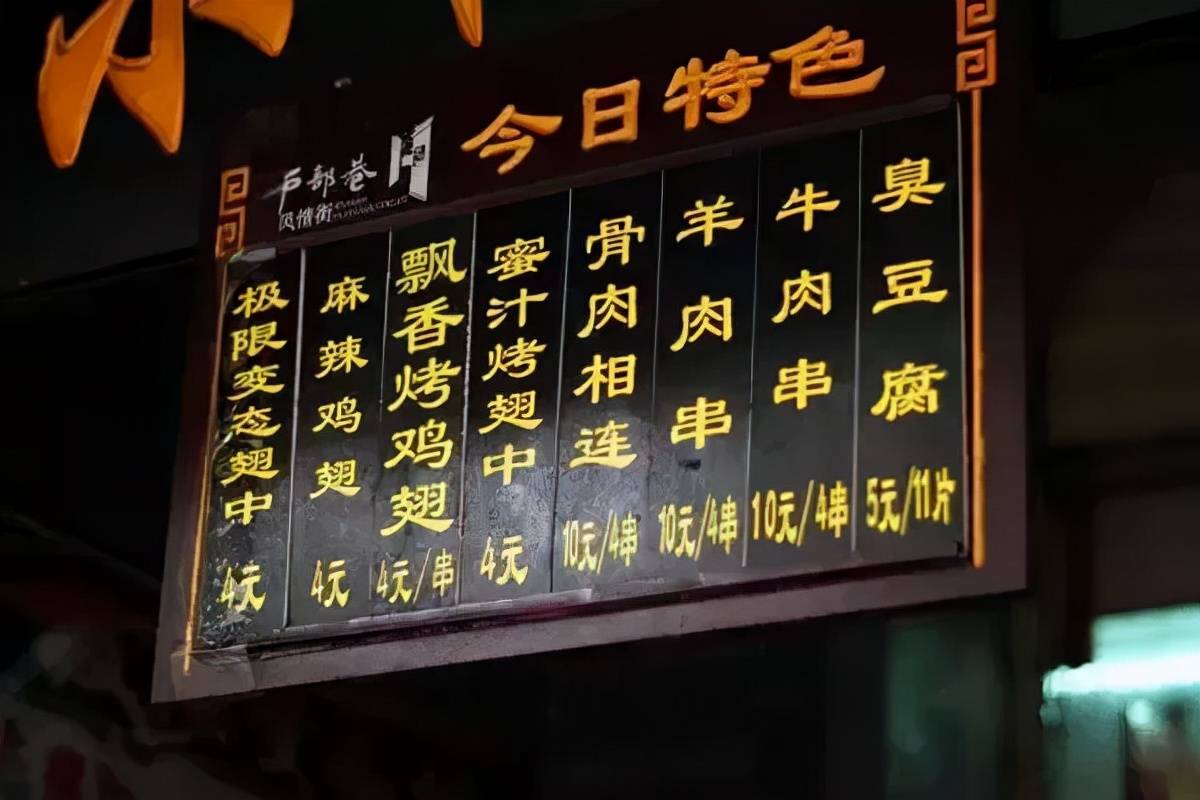 今日特色
户部巷
风情街
极限变态翅中 4元
麻辣鸡翅 4元
飘香烤鸡翅 4元/串
蜜汁烤翅中 4元
骨肉相连 10元/4串
羊肉串 10元/4串
牛肉串 10元/4串
臭豆腐 5元/11片